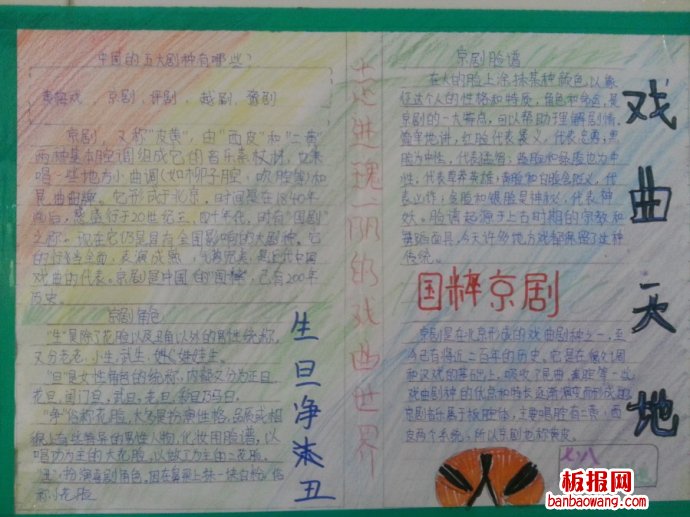 中国的五大剧种有哪些?
黄梅戏、京剧、评剧、越剧、豫剧
京剧,又称"皮黄",由"西皮"和"二黄"
两种基本腔调组成它的音乐素材,也兼
唱一些地方小曲调(如柳子腔,吹腔等)和
昆曲曲牌。它形成于北京,时间是在1840年
前后,盛行于20世纪三、四十年代,时有"国剧"
之称。现在它仍是具有全国影响的大剧种。它
的行当全面,表演成熟,气势宏美,是近代中国
戏曲的代表。京剧是中国的"国粹",已有200年
历史。
京剧角色
"生"是除了花脸以及丑角以外的男性统称,
又分老生、小生、武生
"旦"是女性角色的统称,内部又分为正旦、
花旦、闺门旦、武旦、老旦
"净"俗称花脸,大多是扮演性格,品质或相
貌上有些特异的男性人物,化妆用脸谱,以
唱功为主的大花脸,以做工为主的二花脸。
"丑",扮演喜剧角色,因在鼻梁上抹一块白粉,俗
称小花脸
生旦净末丑
走进瑰丽的戏曲世界
京剧脸谱
在人的脸上涂抹某种颜色,以象
征这个人的性格和特质,角色和命运,是
京剧的一大特点,可以帮助理解剧情。
简单地讲,红脸代表褒义,代表忠勇;黑
脸为中性,代表猛智;蓝脸和绿脸也为中
性,代表草莽英雄;黄脸和白脸含贬义,代
表凶诈;金脸和银脸是神秘,代表神
妖。脸谱起源于上古时期的宗教和
舞蹈面具,今天许多地方戏都保留了这种
传统。
国粹京剧
京剧是在北京形成的戏曲剧种之一,至
今已有将近二百年的历史。它是在徽戏
和汉戏的基础上,吸收了昆曲、秦腔等一些
戏曲剧种的优点和特长逐渐演变而形成的。
京剧音乐属于板腔体,主要唱腔有二黄、西
皮两个系统,所以京剧也称皮黄。
戏曲天地
七、八
板报网
banbaowang.com